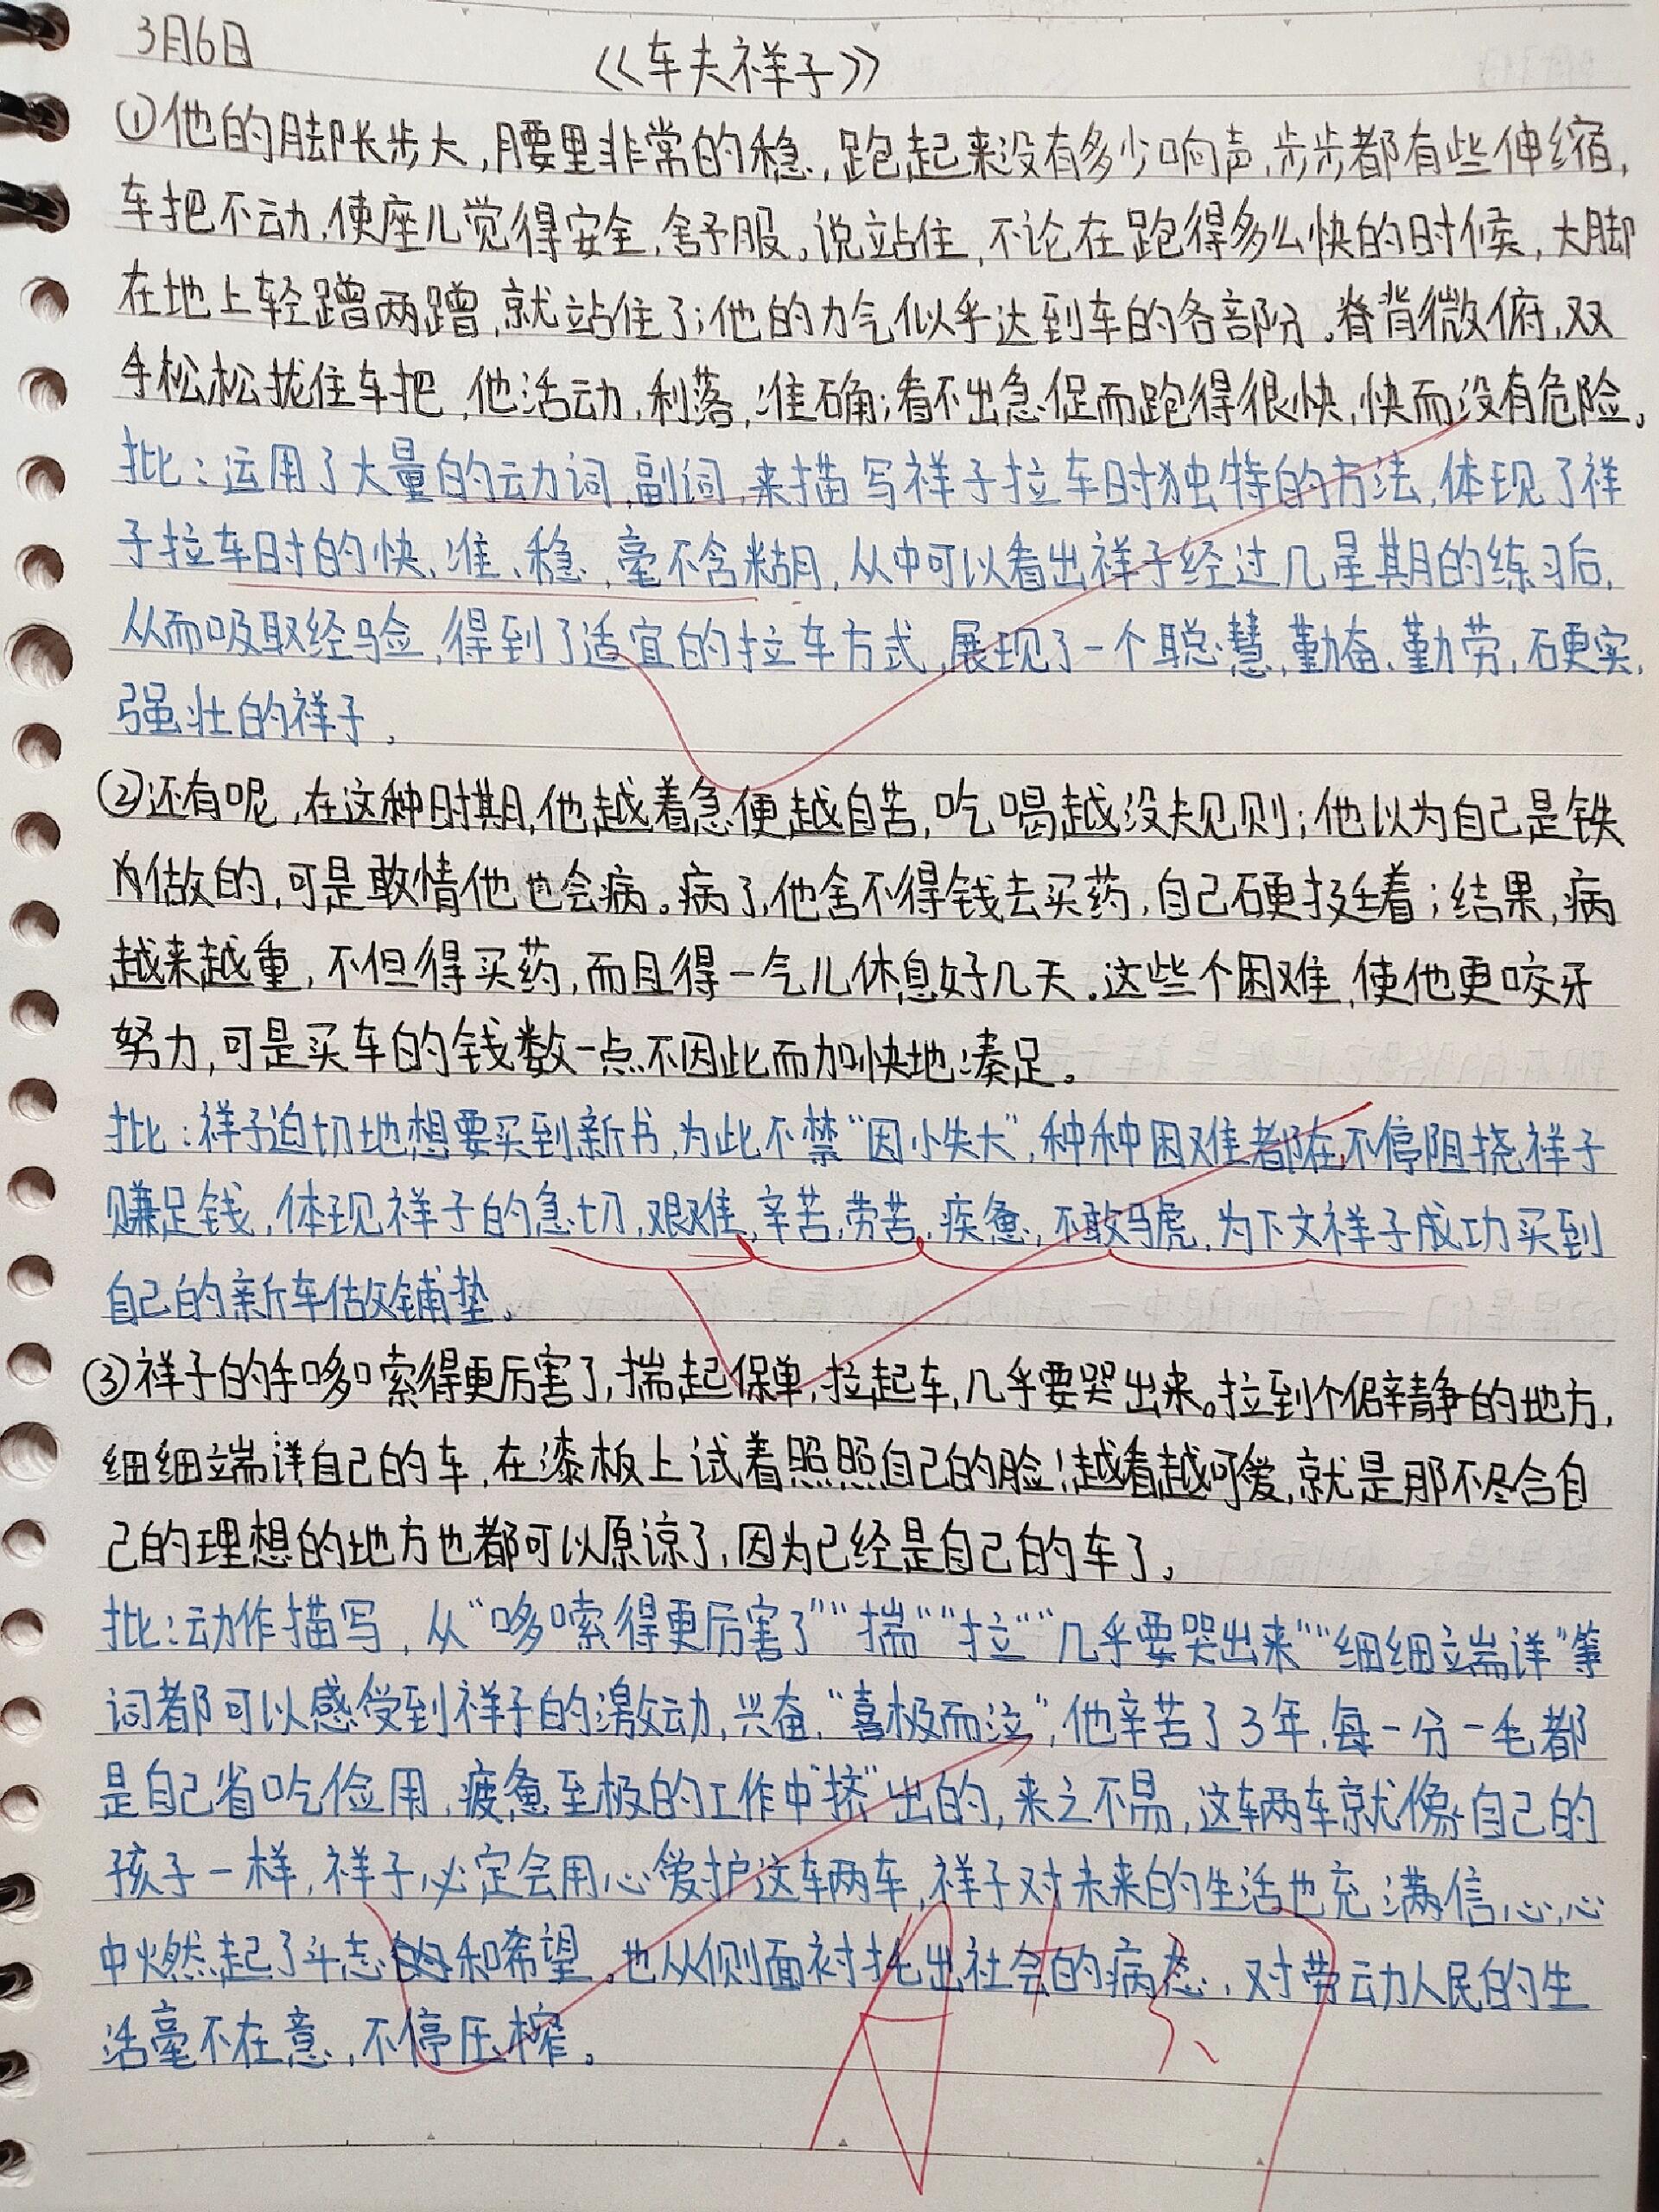 3月6日
《车夫祥子》
①他的脚长步大,腰里非常的稳,跑起来没有多少响声,步步都有些伸缩,
车把不动,使座儿觉得安全,舒服。说站住,不论在跑得多么快的时候,大脚
在地上轻蹭两蹭,就站住了;他的力气似乎达到车的各部分。脊背微俯,双
手松松拢住车把,他活动,利落,准确;看不出急促而跑得很快,快而没有危险。
批:运用了大量的动词,副词,来描写祥子拉车时独特的方法,体现了祥
子拉车时的快、准、稳,毫不含糊,从中可以看出祥子经过几星期的练习后,
从而吸取经验,得到了适宜的拉车方式,展现了一个聪慧,勤奋、勤劳,硬实,
强壮的祥子。
②还有呢,在这种时期,他越着急便越自苦,吃喝越没规则;他以为自己是铁
做的,可是敢情他也会病。病了,他舍不得钱去买药,自己硬挺着;结果,病
越来越重,不但得买药,而且得一气儿休息好几天。这些个困难,使他更咬牙
努力,可是买车的钱数一点不因此而加快地凑足。
批:祥子迫切地想要买到新书,为此不禁“因小失大”,种种困难都在不停阻挠祥子
赚足钱,体现祥子的急切,艰难,辛苦,劳苦,疾惫,不敢马虎,为下文祥子成功买到
自己的新车做铺垫。
③祥子的手哆嗦得更厉害了,揣起保单,拉起车,几乎要哭出来。拉到个僻静的地方,
细细端详自己的车,在漆板上试着照照自己的脸!越看越可爱,就是那不尽合自
己的理想的地方也都可以原谅了,因为已经是自己的车了。
批:动作描写,从“哆嗦得更厉害了”“揣”“拉”“几乎要哭出来”“细细端详”等
词都可以感受到祥子的激动,兴奋,“喜极而泣”,他辛苦了3年,每一分一毛都
是自己省吃俭用,疲惫至极的工作中“挤”出的,来之不易,这辆车就像自己的
孩子一样,祥子必定会用心爱护这辆车,祥子对未来的生活也充满信心,心
中燃起了斗志和希望。也从侧面衬托出社会的病态,对劳动人民的生
活毫不在意,不停压榨。